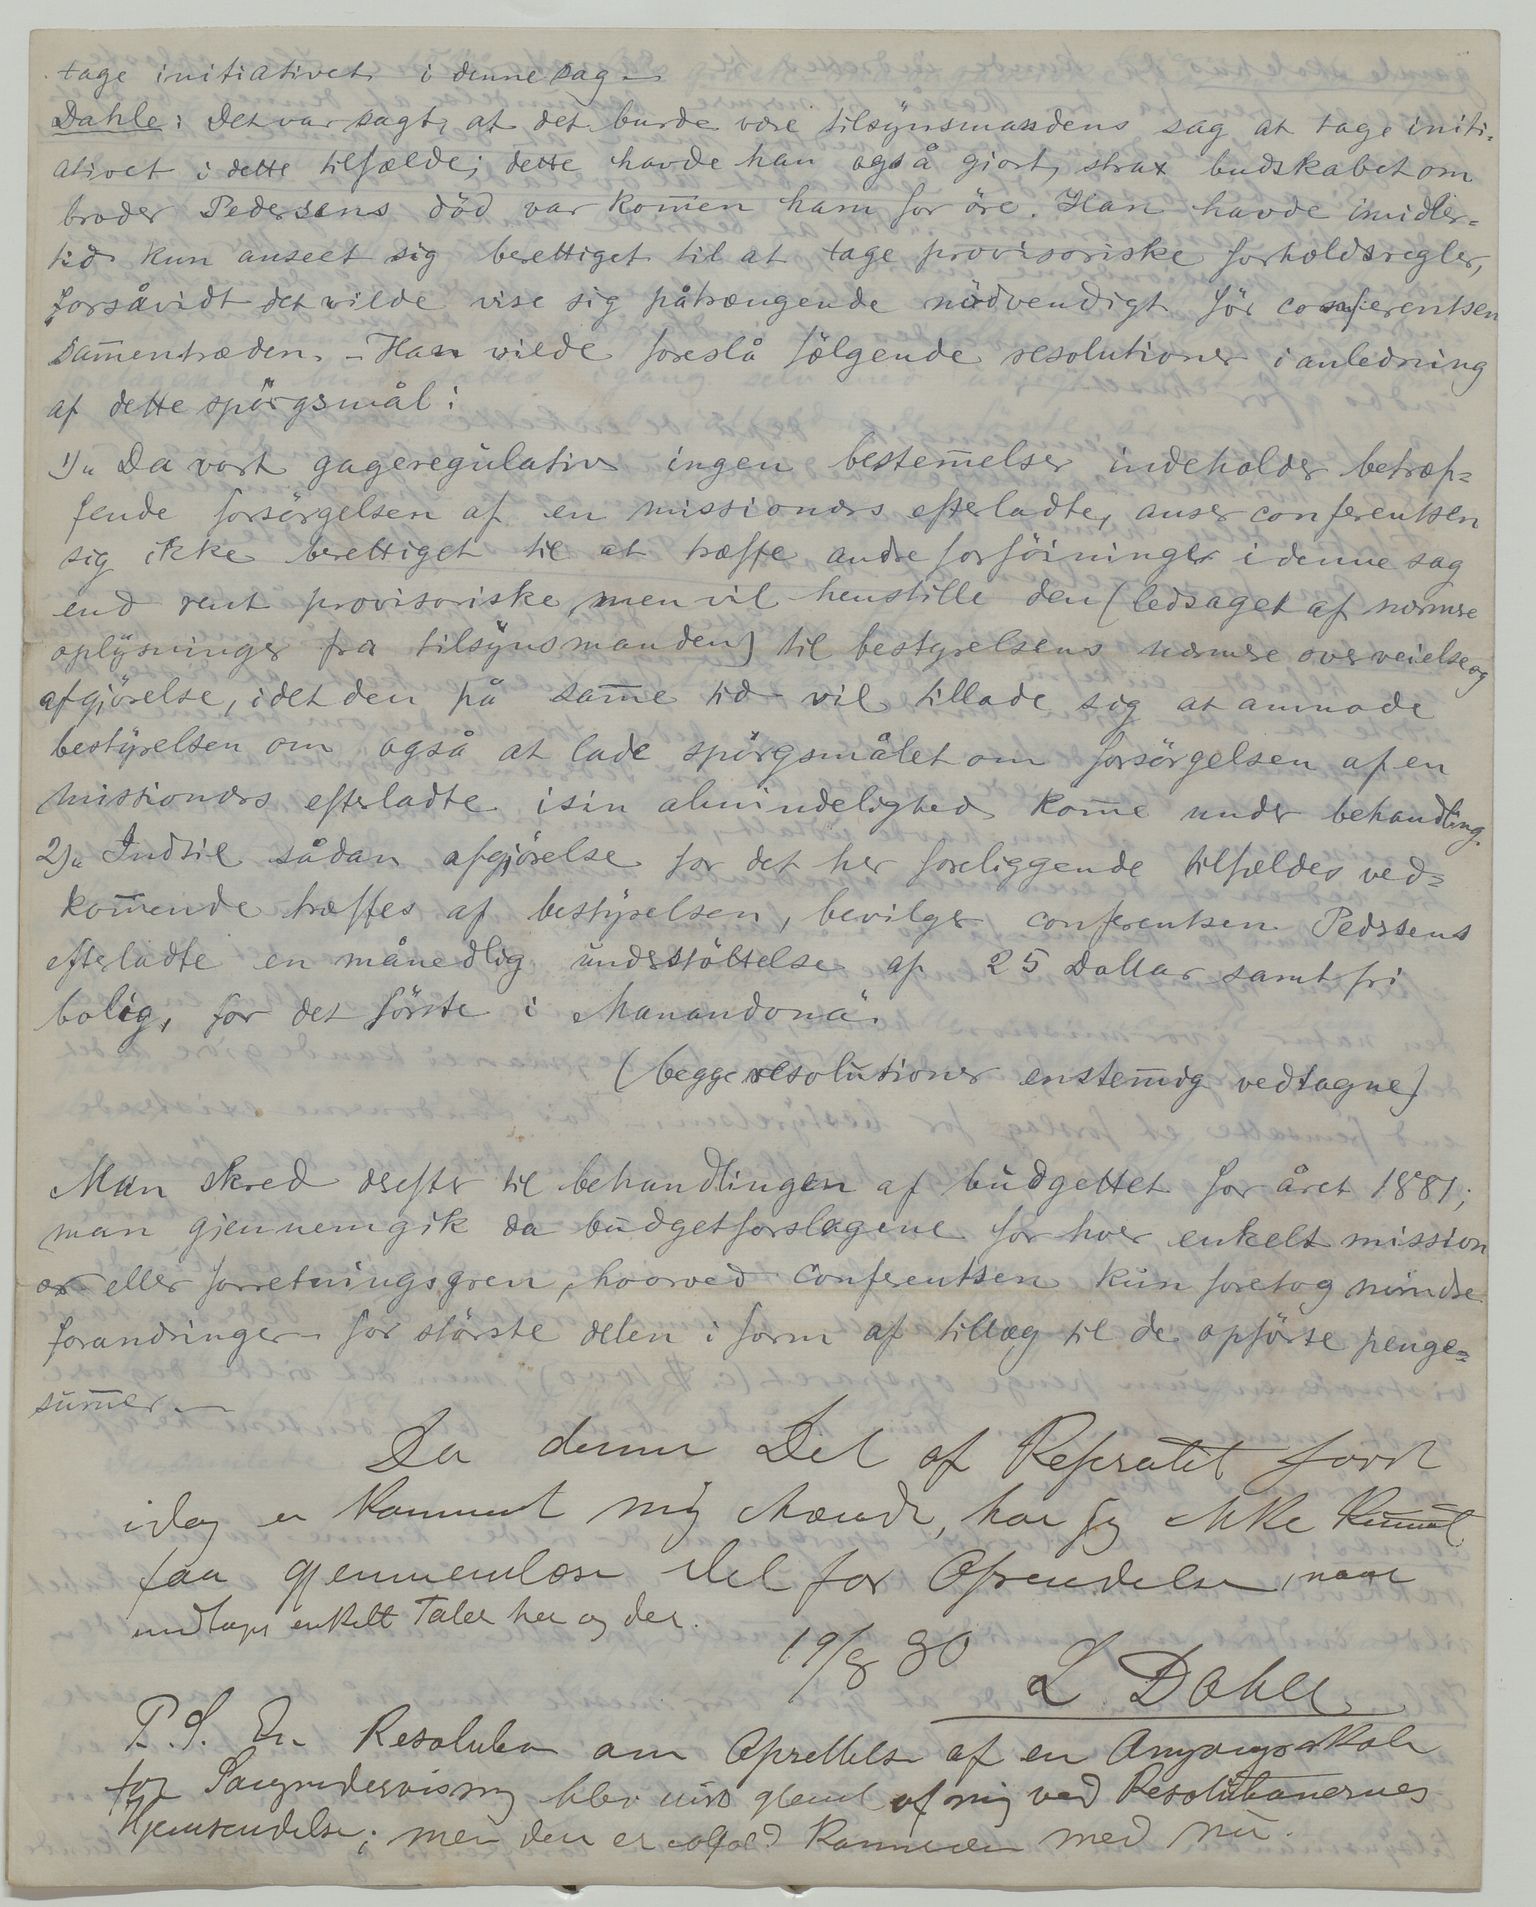 tage initiativet i denne sag. –
Dahle: Det var sagt, at det burde være tilsynsmandens sag at tage initi-
ativet i dette tilfælde; dette havde han også giort, strax budskabet om
broder Pedersens död var komen ham for öre. Han havde imidler=
tid kun anseet sig berettiget til at tage provisoriske forholdsregler,
forsåvidt det vilde vise sig påtrængende nödvendigt för conferentsen
sam̄entræden. – Han vilde foreslå fölgende resolutioner i anledning
af dette spörgsmål:
1) „ Da vort gageregulativ ingen bestem̄elser indeholder betræf=
fende forsörgelsen af en missionærs efterladte, anser conferentsen
sig ikke berettiget til at træffe andre forföininger i denne sag
end rent provisoriske, men vil henstille den (ledsaget af nærmere
oplysninger fra tilsynsmanden) til bestyrelsens nærmere overveielse og
afgjörelse, idet den på sam̄e tid vil tillade sig at anmode
bestyrelsen om også at lade spörgsmålet om forsörgelsen af en
missionærs efterladte i sin almindelighed kom̄e under behandling.
2) „ Indtil sådan afgjörelse for det her foreliggende tilfældes ved=
kom̄ende træffes af bestyrelsen, bevilger conferentsen Pedersens
efterladte en månedlig understöttelse af 25 Dollar samt fri
bolig, for det förste i Manandona".
(begge resolutioner enstem̄ig vedtagne)
Man skred derefter til behandlingen af budgettet for året 1881;
man gjennemgik da budgetforslagene for hver enkelt mission
ær eller forretningsgren, hvorved conferentsen kun foretog mindre
forandringer – for störste delen i form af tillæg til de opförte penge=
sum̄er. –
Da denne Del af Referatet först
idag er kommet mig ihænde, har jeg ikke kunnet
faa gjennemlæse det för Afsendelsen, naar
undtages enkelte Taler her og der.
19/8 80 L. Dahle
P. S. En Resolution om Oprettelse af en Omgangsskole
for Sangundervisning blev glemt af mig ved Resolutionernes
Hjemsendelse; men den er ialfald kommen med nu.